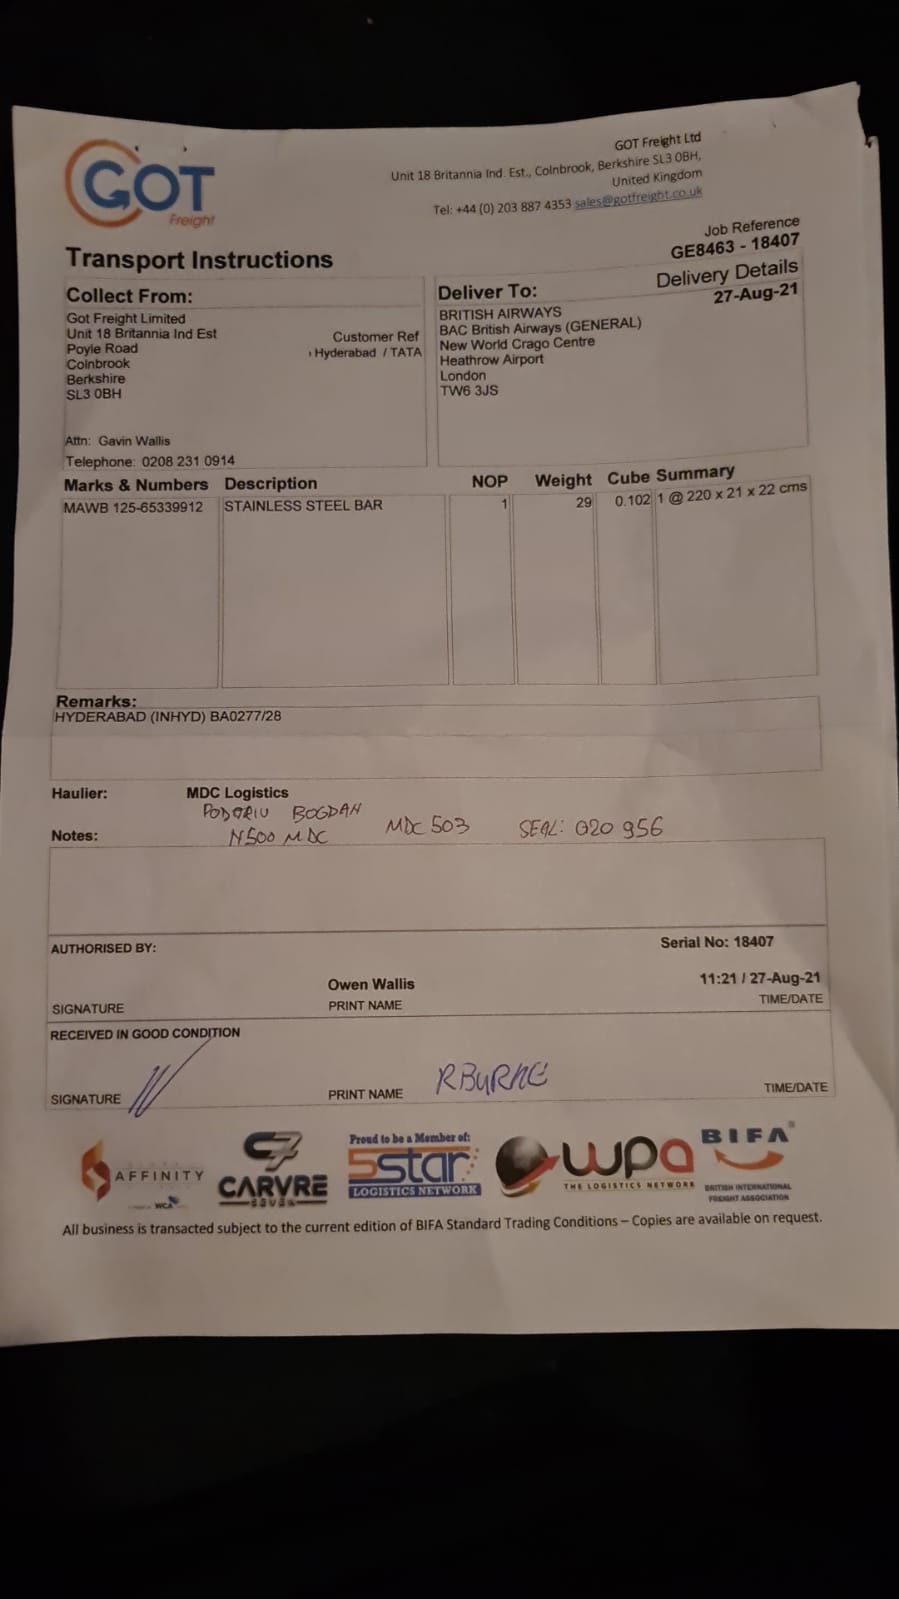 GOT
Freight
GOT Freight Ltd
Unit 18 Britannia Ind. Est., Colnbrook, Berkshire SL3 0BH,
United Kingdom
Tel: +44 (0) 203 887 4353 sales@gotfreight.co.uk
Job Reference
GE8463 - 18407
Transport Instructions
Delivery Details
27-Aug-21
Collect From:
Got Freight Limited
Unit 18 Britannia Ind Est
Poyle Road
Colnbrook
Berkshire
SL3 0BH
Customer Ref
Hyderabad / TATA
Attn: Gavin Wallis
Telephone: 0208 231 0914
Deliver To:
BRITISH AIRWAYS
BAC British Airways (GENERAL)
New World Crago Centre
Heathrow Airport
London
TW6 3JS
Marks & Numbers Description NOP Weight Cube Summary
MAWB 125-65339912 STAINLESS STEEL BAR 1 29 0.102 1 @ 220 x 21 x 22 cms
Remarks:
HYDERABAD (INHYD) BA0277/28
Haulier: MDC Logistics
BOGDAN
Notes: N500 MDC MDC 503 SEAL: 020 956
AUTHORISED BY: Serial No: 18407
Owen Wallis 11:21 / 27-Aug-21
SIGNATURE PRINT NAME TIME/DATE
RECEIVED IN GOOD CONDITION
SIGNATURE PRINT NAME R BURKE TIME/DATE
AFFINITY
WCA
C7
CARVRE
SEVEN
Proud to be a Member of:
5star
LOGISTICS NETWORK
wpa
THE LOGISTICS NETWORK
BIFA
BRITISH INTERNATIONAL
FREIGHT ASSOCIATION
All business is transacted subject to the current edition of BIFA Standard Trading Conditions – Copies are available on request.